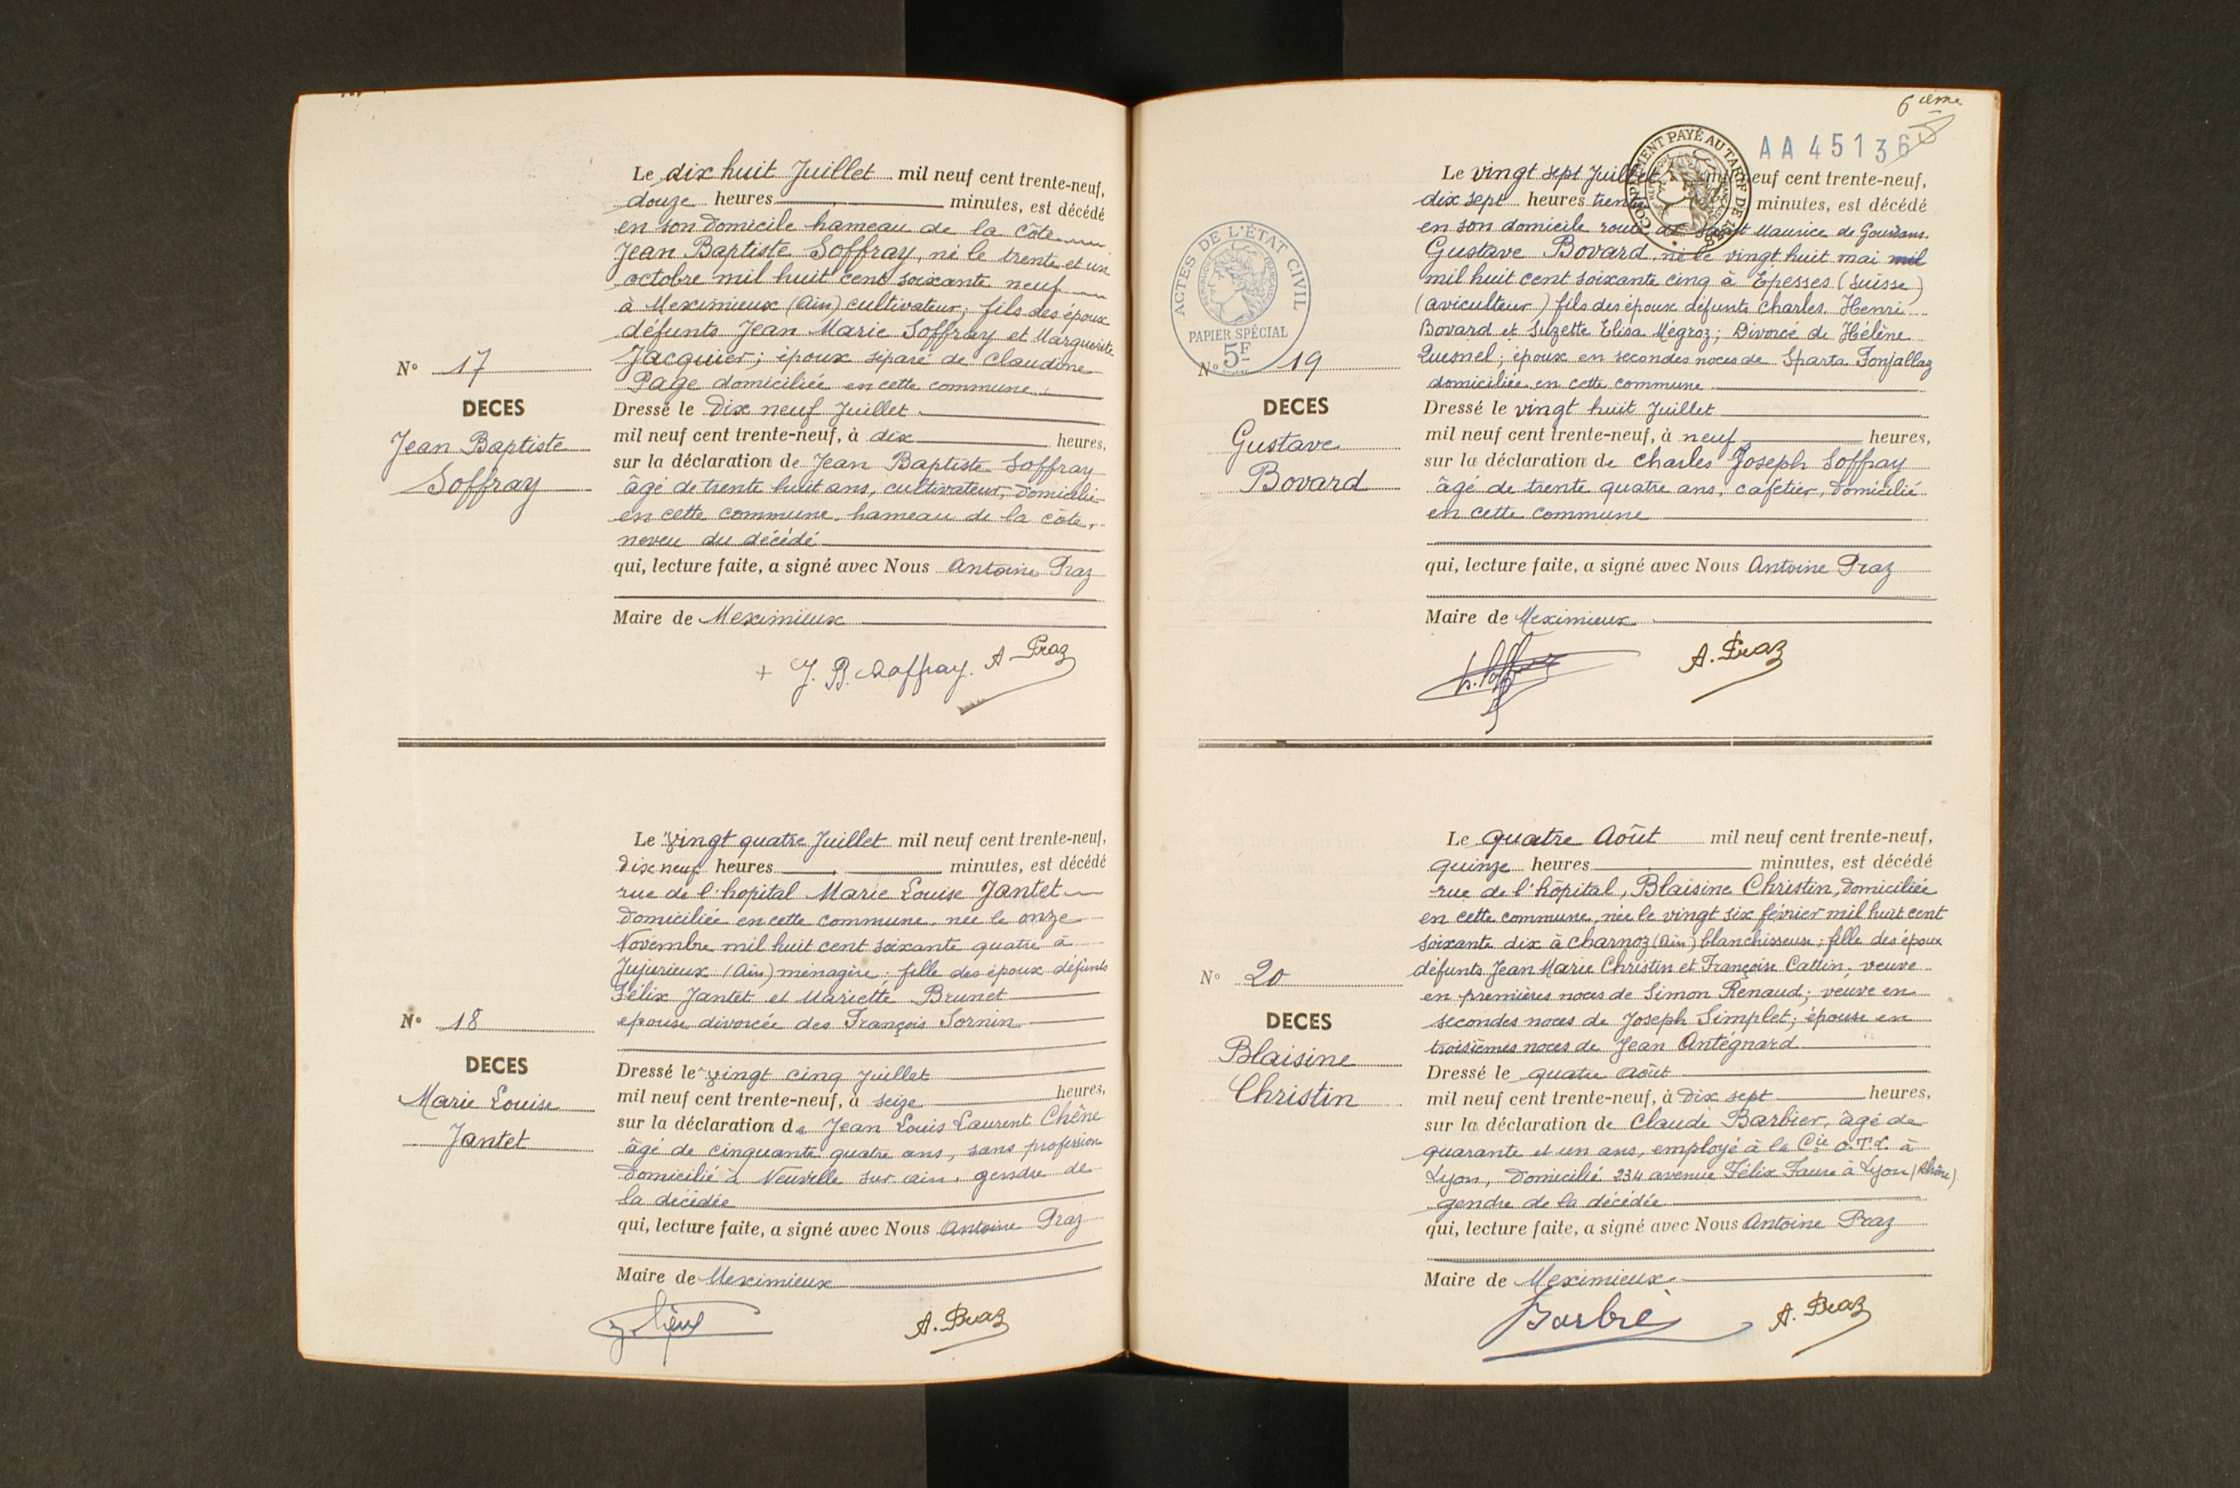 Le dix huit Juillet mil neuf cent trente-neuf,
douze heures minutes, est décédé
en son domicile hameau de la côte
Jean Baptiste Soffray, né le trente et un
octobre mil huit cent soixante neuf
à Meximieux (Ain) cultivateur; fils des époux
défunts Jean Marie Soffray et Marguerite
Jacquier; époux séparé de Claudine
Page domiciliée en cette commune
N° 17
DECES
Jean Baptiste
Soffray
Dressé le Dix neuf Juillet
mil neuf cent trente-neuf, à dix heures,
sur la déclaration de Jean Baptiste Soffray
âgé de trente huit ans, cultivateur, domicilié
en cette commune, hameau de la côte,
neveu du décédé
qui, lecture faite, a signé avec Nous Antoine Praz
Maire de Meximieux
+ J. B. Soffray. A Praz
Le vingt quatre Juillet mil neuf cent trente-neuf,
dix neuf heures minutes, est décédé
rue de l'hopital Marie Louise Jantet
domiciliée en cette commune, née le onze
Novembre mil huit cent soixante quatre à
Jujurieux (Ain) ménagère; fille des époux défunts
Félix Jantet et Mariette Brunet
épouse divorcée des François Sornin
N° 18
DECES
Marie Louise
Jantet
Dressé le vingt cinq Juillet
mil neuf cent trente-neuf, à seize heures,
sur la déclaration de Jean Louis Laurent Chêne
âgé de cinquante quatre ans, sans profession
domicilié à Neuville sur ain, gendre de
la décédée
qui, lecture faite, a signé avec Nous Antoine Praz
Maire de Meximieux
A. Praz
6ième
AA 45136
COMPLÉMENT PAYÉ AU TARIF DE
Le vingt sept Juillet mil neuf cent trente-neuf,
dix sept heures trente minutes, est décédé
en son domicile route de Saint Maurice de Gourdans.
Gustave Bovard, né le vingt huit mai mil
mil huit cent soixante cinq à Epesses (Suisse)
(aviculteur) fils des époux défunts Charles Henri
Bovard et Suzette Elisa Mégroz; Divorcé de Hélène
Quesnel; époux en secondes noces de Sparta Fonjallaz
domiciliée en cette commune
ACTES DE L'ÉTAT CIVIL
PAPIER SPÉCIAL
5F
N° 19
DECES
Gustave
Bovard
Dressé le vingt huit Juillet
mil neuf cent trente-neuf, à neuf heures,
sur la déclaration de Charles Joseph Soffray
âgé de trente quatre ans, cafetier, domicilié
en cette commune
qui, lecture faite, a signé avec Nous Antoine Praz
Maire de Meximieux
A. Praz
Le quatre Août mil neuf cent trente-neuf,
quinze heures minutes, est décédé
rue de l'hôpital, Blaisine Christin, domiciliée
en cette commune, née le vingt six février mil huit cent
soixante dix à Charnoz (Ain) blanchisseuse; fille des époux
défunts Jean Marie Christin et Françoise Cattin; veuve
en premières noces de Simon Renaud; veuve en
secondes noces de Joseph Simplet; épouse en
troisièmes noces de Jean Antégnard
N° 20
DECES
Blaisine
Christin
Dressé le quatre août
mil neuf cent trente-neuf, à Dix sept heures,
sur la déclaration de Claude Barbier, âgé de
quarante et un ans, employé à la Cie O.T.L. à
Lyon, domicilié 234 avenue Félix Faure à Lyon (Rhône)
gendre de la décédée
qui, lecture faite, a signé avec Nous Antoine Praz
Maire de Meximieux
A. Praz